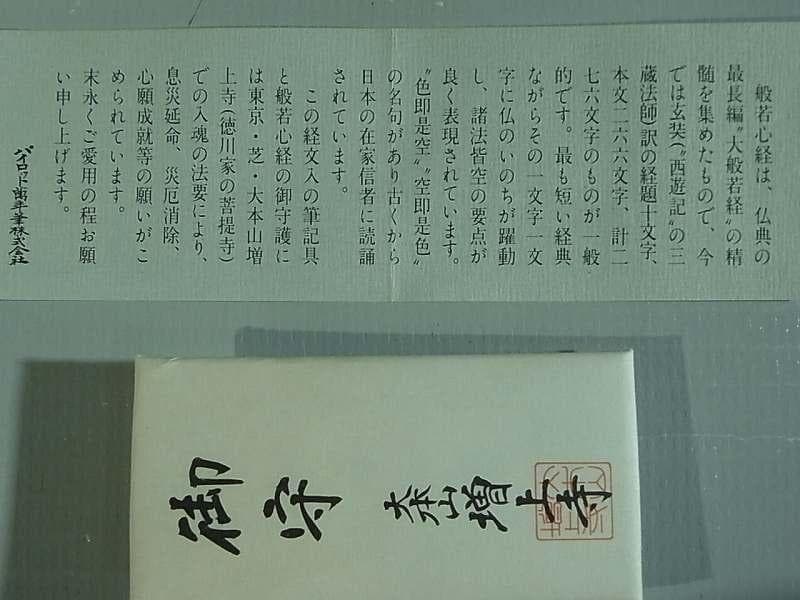 般若心経は、仏典の
最長編〝大般若経〟の精
髄を集めたもので、今
では玄奘(〝西遊記〟の三
蔵法師)訳の経題十文字、
本文二六六文字、計二
七六文字のものが一般
的です。最も短い経典
ながらその一文字一文
字に仏のいのちが躍動
し、諸法皆空の要点が
良く表現されています。
〝色即是空〟〝空即是色〟
の名句があり古くから
日本の在家信者に読誦
されています。
この経文入の筆記具
と般若心経の御守護に
は東京・芝・大本山増
上寺(徳川家の菩提寺)
での入魂の法要により、
息災延命、災厄消除、
心願成就等の願いがこ
められています。
末永くご愛用の程お願
い申し上げます。
パイロット萬年筆株式会社
大本山増上寺
御守